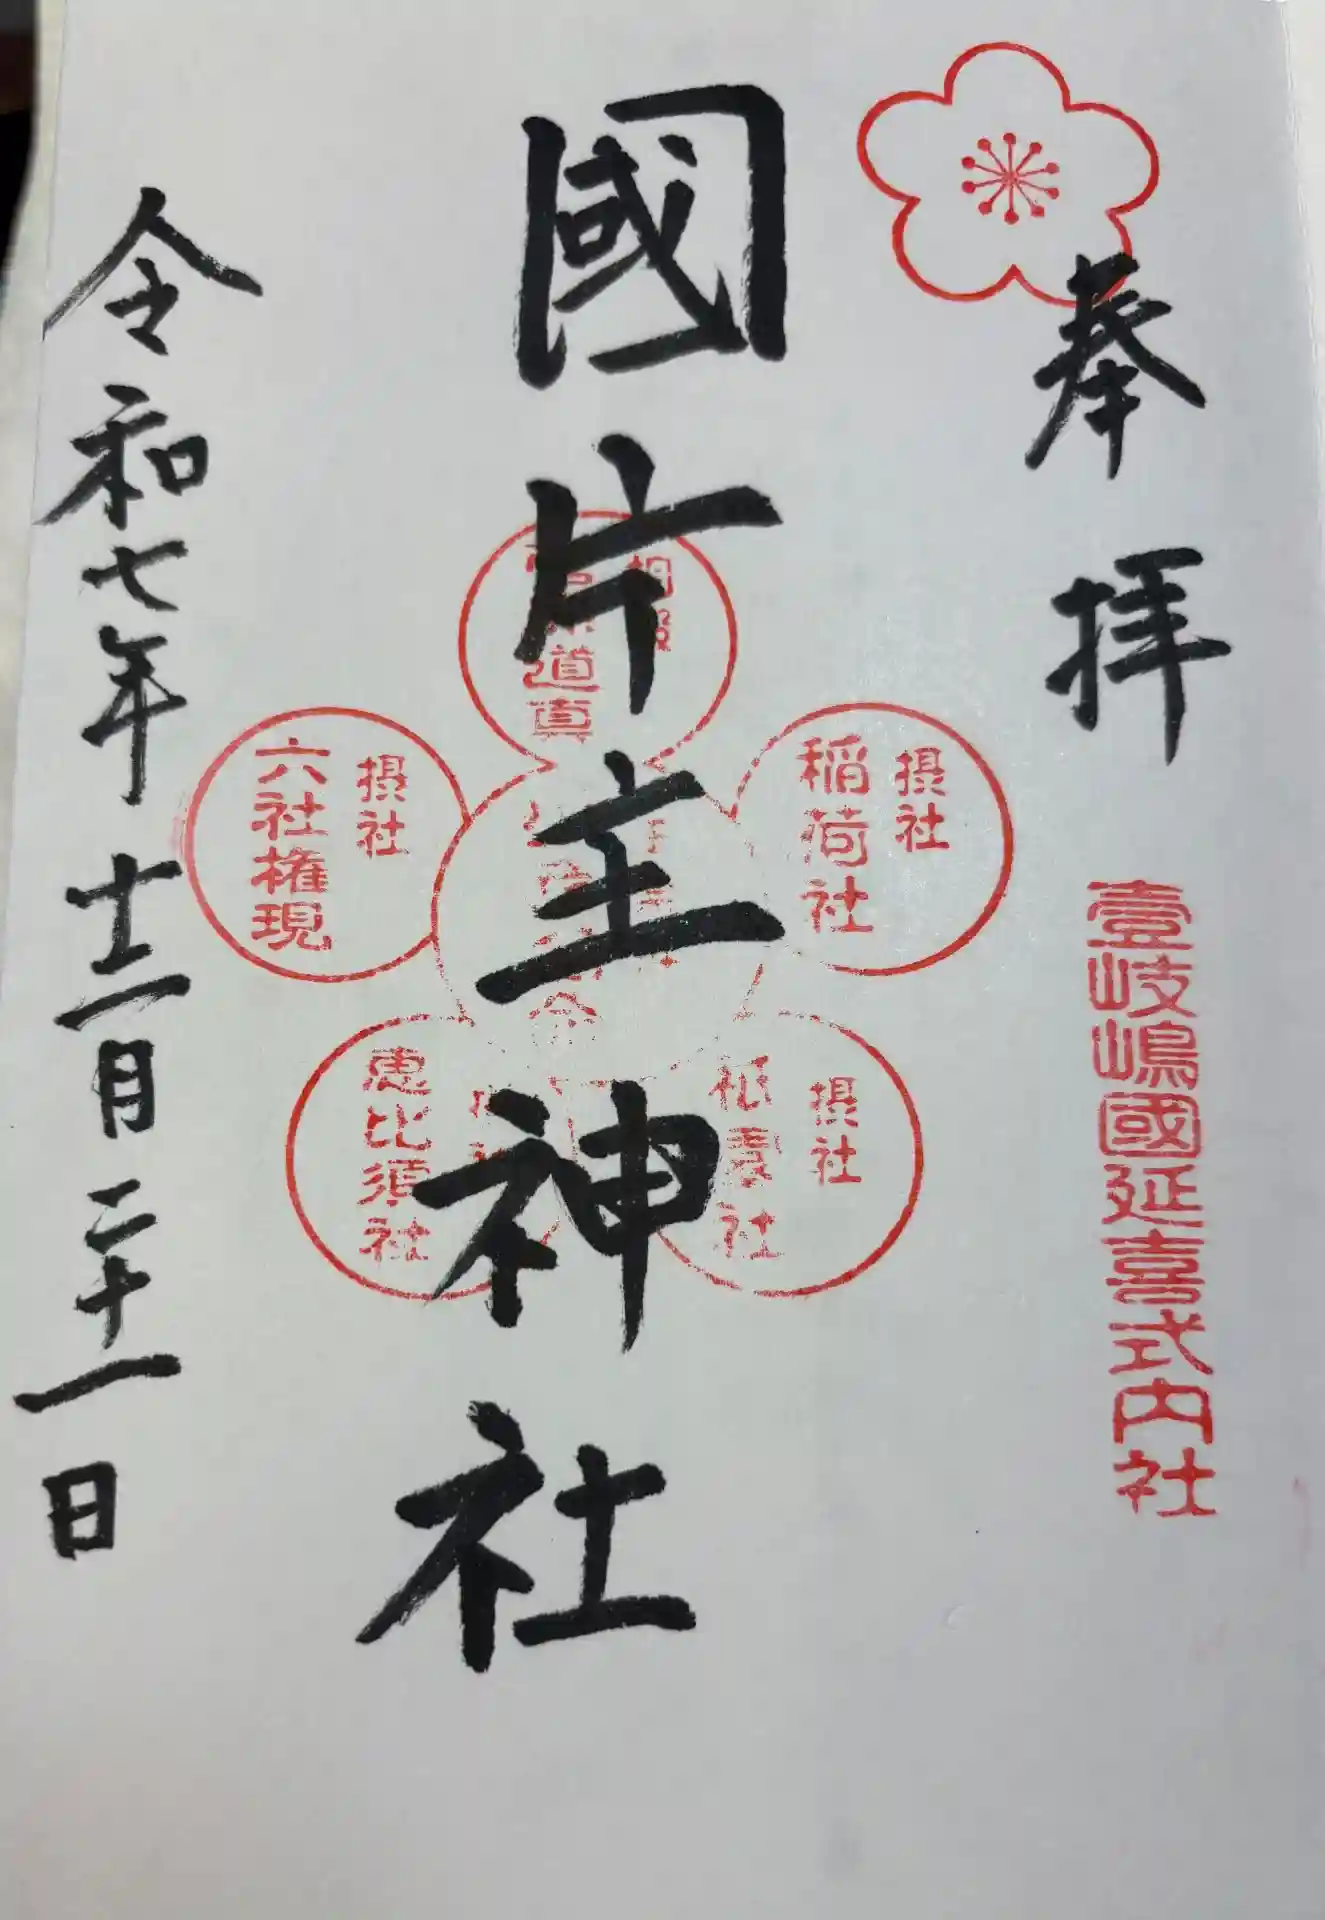 奉拝
壹岐嶋國延喜式内社
國片主神社
道真
摂社
稲荷社
摂社
六社権現
摂社
祇園社
恵比須社
令和七年十二月二十一日